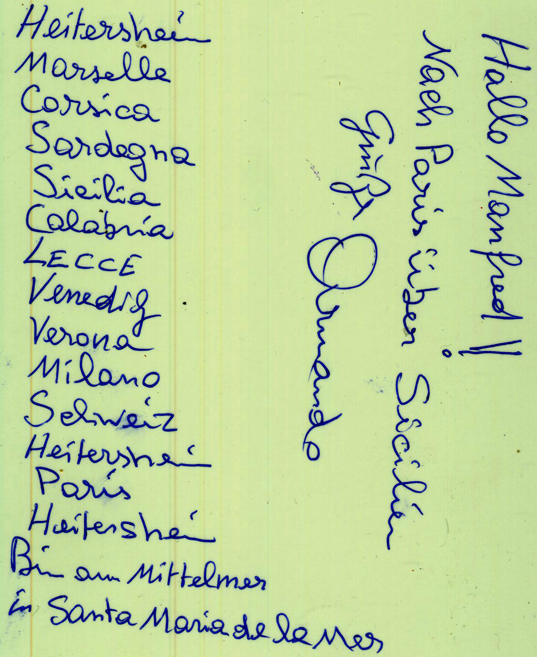 Heitersheim
Marselle
Corsica
Sardegna
Sicilia
Calabria
LECCE
Venedig
Verona
Milano
Schweiz
Heitersheim
Paris
Heitersheim
Bin am Mittelmer
in Santa Maria de la Mer
Hallo Manfred !!
Nach Paris über Sicilien
Grüße
Armando